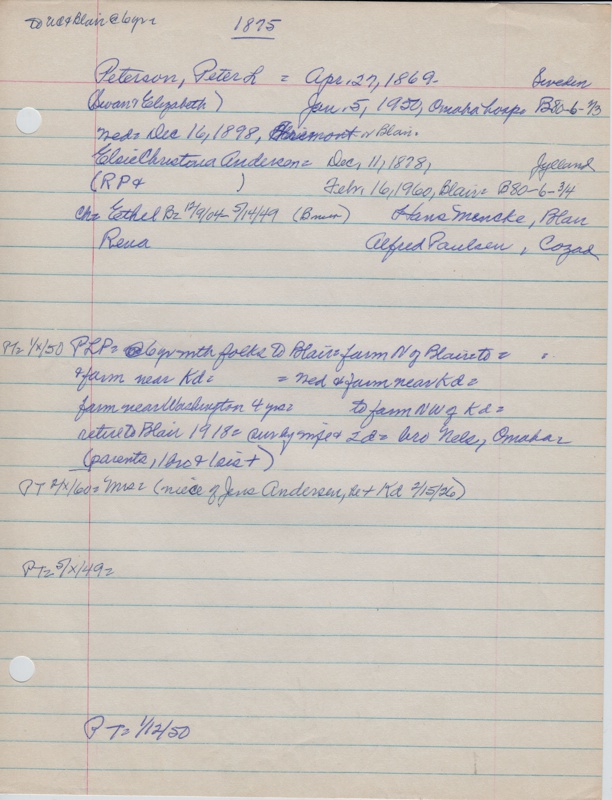 To US & Blair @ 6yr = 1875
Peterson, Peter L = Apr. 27, 1869- Sweden
(Swan & Elizabeth) Jan. 5, 1950, Omaha hosp= B80-6-1/3
wed= Dec 16, 1898, Blair.
Elsie Christina Andersen= Dec, 11, 1878, Jylland
(RP & ) Febr. 16, 1960, Blair= B80-6-3/4
ch= Ethel B= 12/9/04- 5/14/49 Hans Mencke, Blair
Rena Alfred Paulsen, Cozad
PT= 1/x/50 PLP= @6yr with folks to Blair= farm N of Blair to =
& farm near Kd= = wed & farm near Kd=
farm near Washington 4 yrs= to farm NW of Kd=
retire to Blair 1918= surv by wife & 2d= bro Nels, Omaha=
(parents, 1 bro & 1 sis +)
PT 2/x/60= Mrs= (niece of Jens Andersen, Kd 2/15/26)
PT= 5/x/49=
PT= 1/12/50